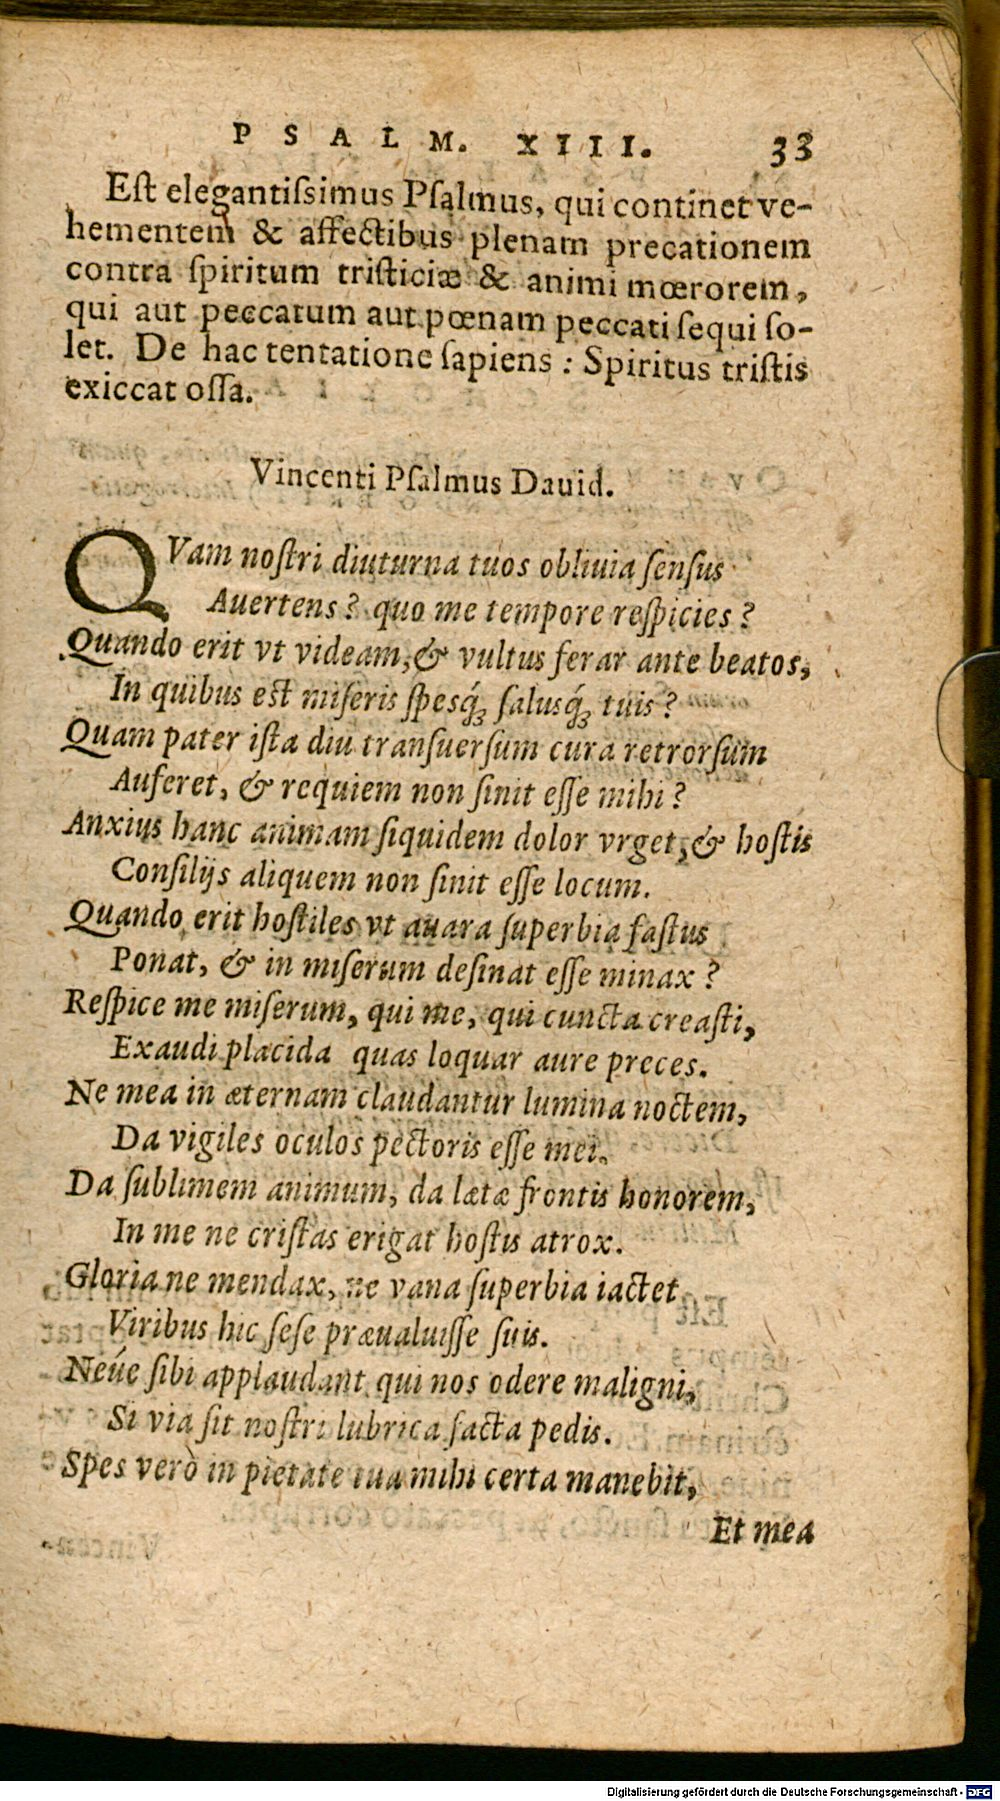 PSALM. XIII. 33
Est elegantiſsimus Pſalmus, qui continet ve-
hementem & affectibus plenam precationem
contra ſpiritum triſticiæ & animi mœrorem,
qui aut peccatum aut pœnam peccati ſequi ſo-
let. De hac tentatione ſapiens : Spiritus triſtis
exiccat oſſa.
Vincenti Pſalmus Dauid.
QVam noſtri diuturna tuos obliuia ſenſus
Auertens? quo me tempore reſpicies?
Quando erit vt videam, & vultus ferar ante beatos,
In quibus est miſeris ſpesq́ꝫ ſalusq́ꝫ tuis?
Quam pater iſta diu tranſuerſum cura retrorſum
Auferet, & requiem non ſinit eſſe mihi?
Anxius hanc animam ſiquidem dolor vrget, & hoſtis
Conſilijs aliquem non ſinit eſſe locum.
Quando erit hoſtiles vt auara ſuperbia faſtus
Ponat, & in miſerum deſinat eſſe minax?
Reſpice me miſerum, qui me, qui cuncta creaſti,
Exaudi placida quas loquar aure preces.
Ne mea in æternam claudantur lumina noctem,
Da vigiles oculos pectoris eſſe mei.
Da ſublimem animum, da lætæ frontis honorem,
In me ne criſtas erigat hoſtis atrox.
Gloria ne mendax, ne vana ſuperbia iactet
Viribus hic ſeſe præualuiſſe ſuis.
Neúe ſibi applaudant qui nos odere maligni,
Si via ſit noſtri lubrica facta pedis.
Spes verò in pietate tua mihi certa manebit,
Et mea
Digitalisierung gefördert durch die Deutsche Forschungsgemeinschaft - DFG